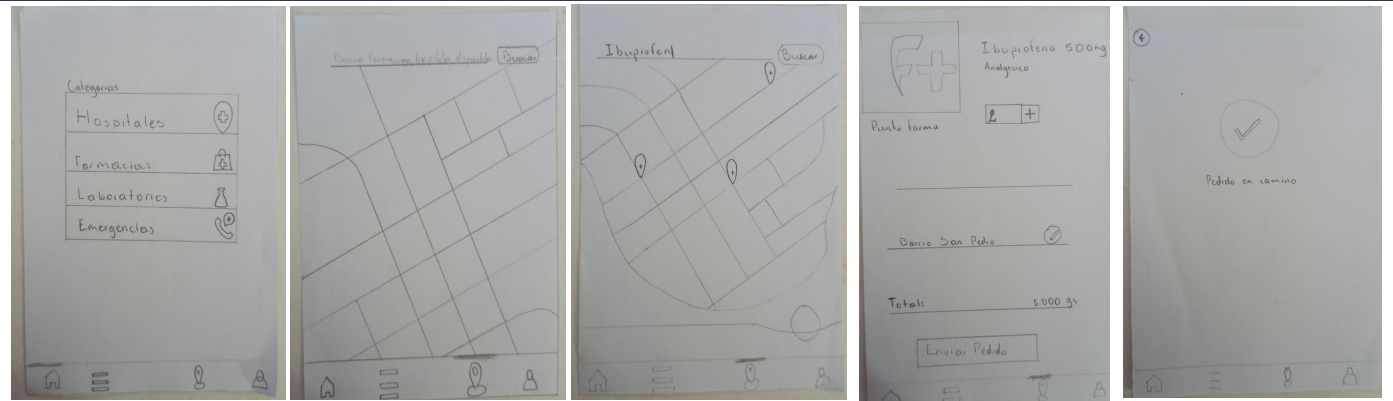 Categorias
Hospitales
Farmacias
Laboratorios
Emergencias
Busca farmacias, hospitales
Buscar
Ibuprofen
Buscar
F+
Ibuprofeno 500mg
Analgesico
2 +
Punto farma
Barrio San Pedro
Total: 5.000 gs
Enviar Pedido
Pedido en camino